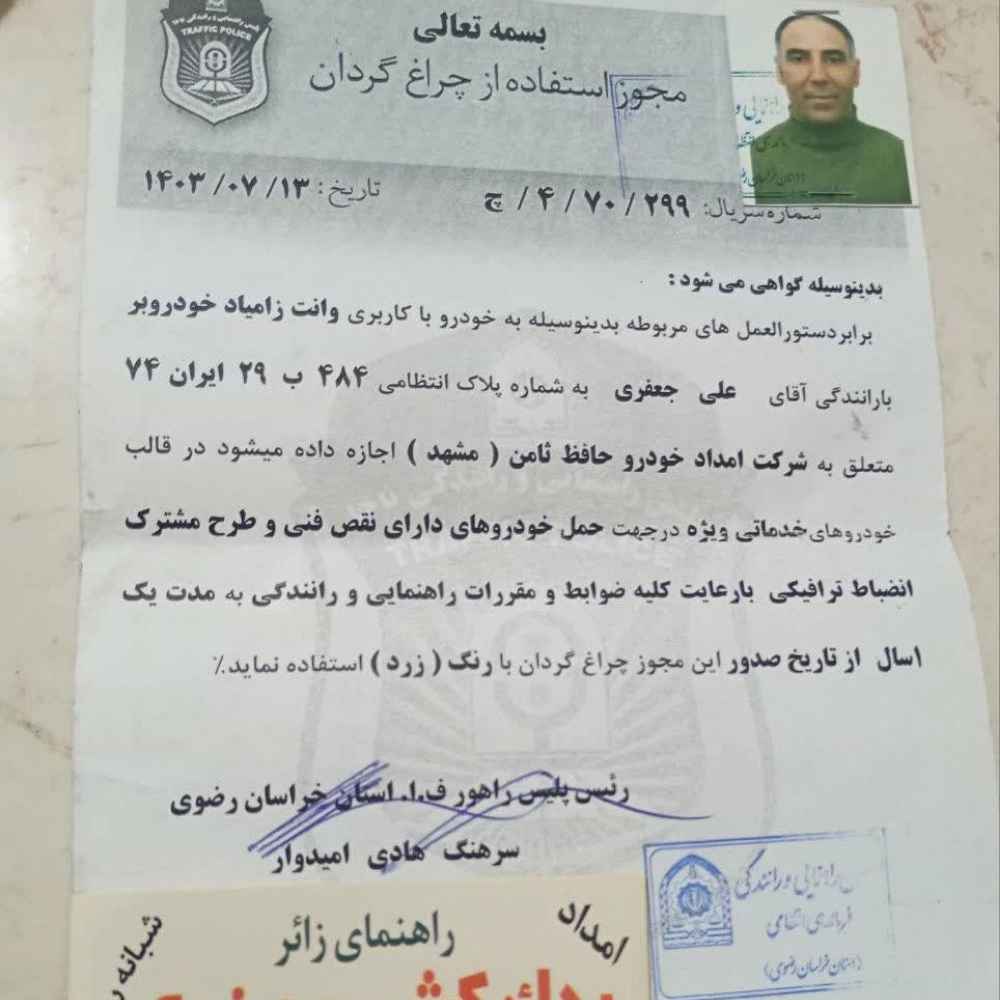 پلیس راهنمایی و رانندگی ناجا
TRAFFIC POLICE
بسمه تعالی
مجوز استفاده از چراغ گردان
تاریخ: ۱۴۰۳/۰۷/۱۳
شماره سریال: ۲۹۹ / ۷۰ / ۴ / چ
بدینوسیله گواهی می شود :
برابردستورالعمل های مربوطه بدینوسیله به خودرو با کاربری وانت زامیاد خودروبر
بارانندگی آقای علی جعفری به شماره پلاک انتظامی ۴۸۴ ب ۲۹ ایران ۷۴
متعلق به شرکت امداد خودرو حافظ ثامن ( مشهد ) اجازه داده میشود در قالب
خودروهای خدماتی ویژه درجهت حمل خودروهای دارای نقص فنی و طرح مشترک
انضباط ترافیکی بارعایت کلیه ضوابط و مقررات راهنمایی و رانندگی به مدت یک
۱سال از تاریخ صدور این مجوز چراغ گردان با رنگ ( زرد ) استفاده نماید.٪
رئیس پلیس راهور ف.ا. استان خراسان رضوی
سرهنگ هادی امیدوار
راهنمایی ورانندگی
فرماندهی انتظامی
(استان خراسان رضوی)
امداد
راهنمای زائر
شبانه